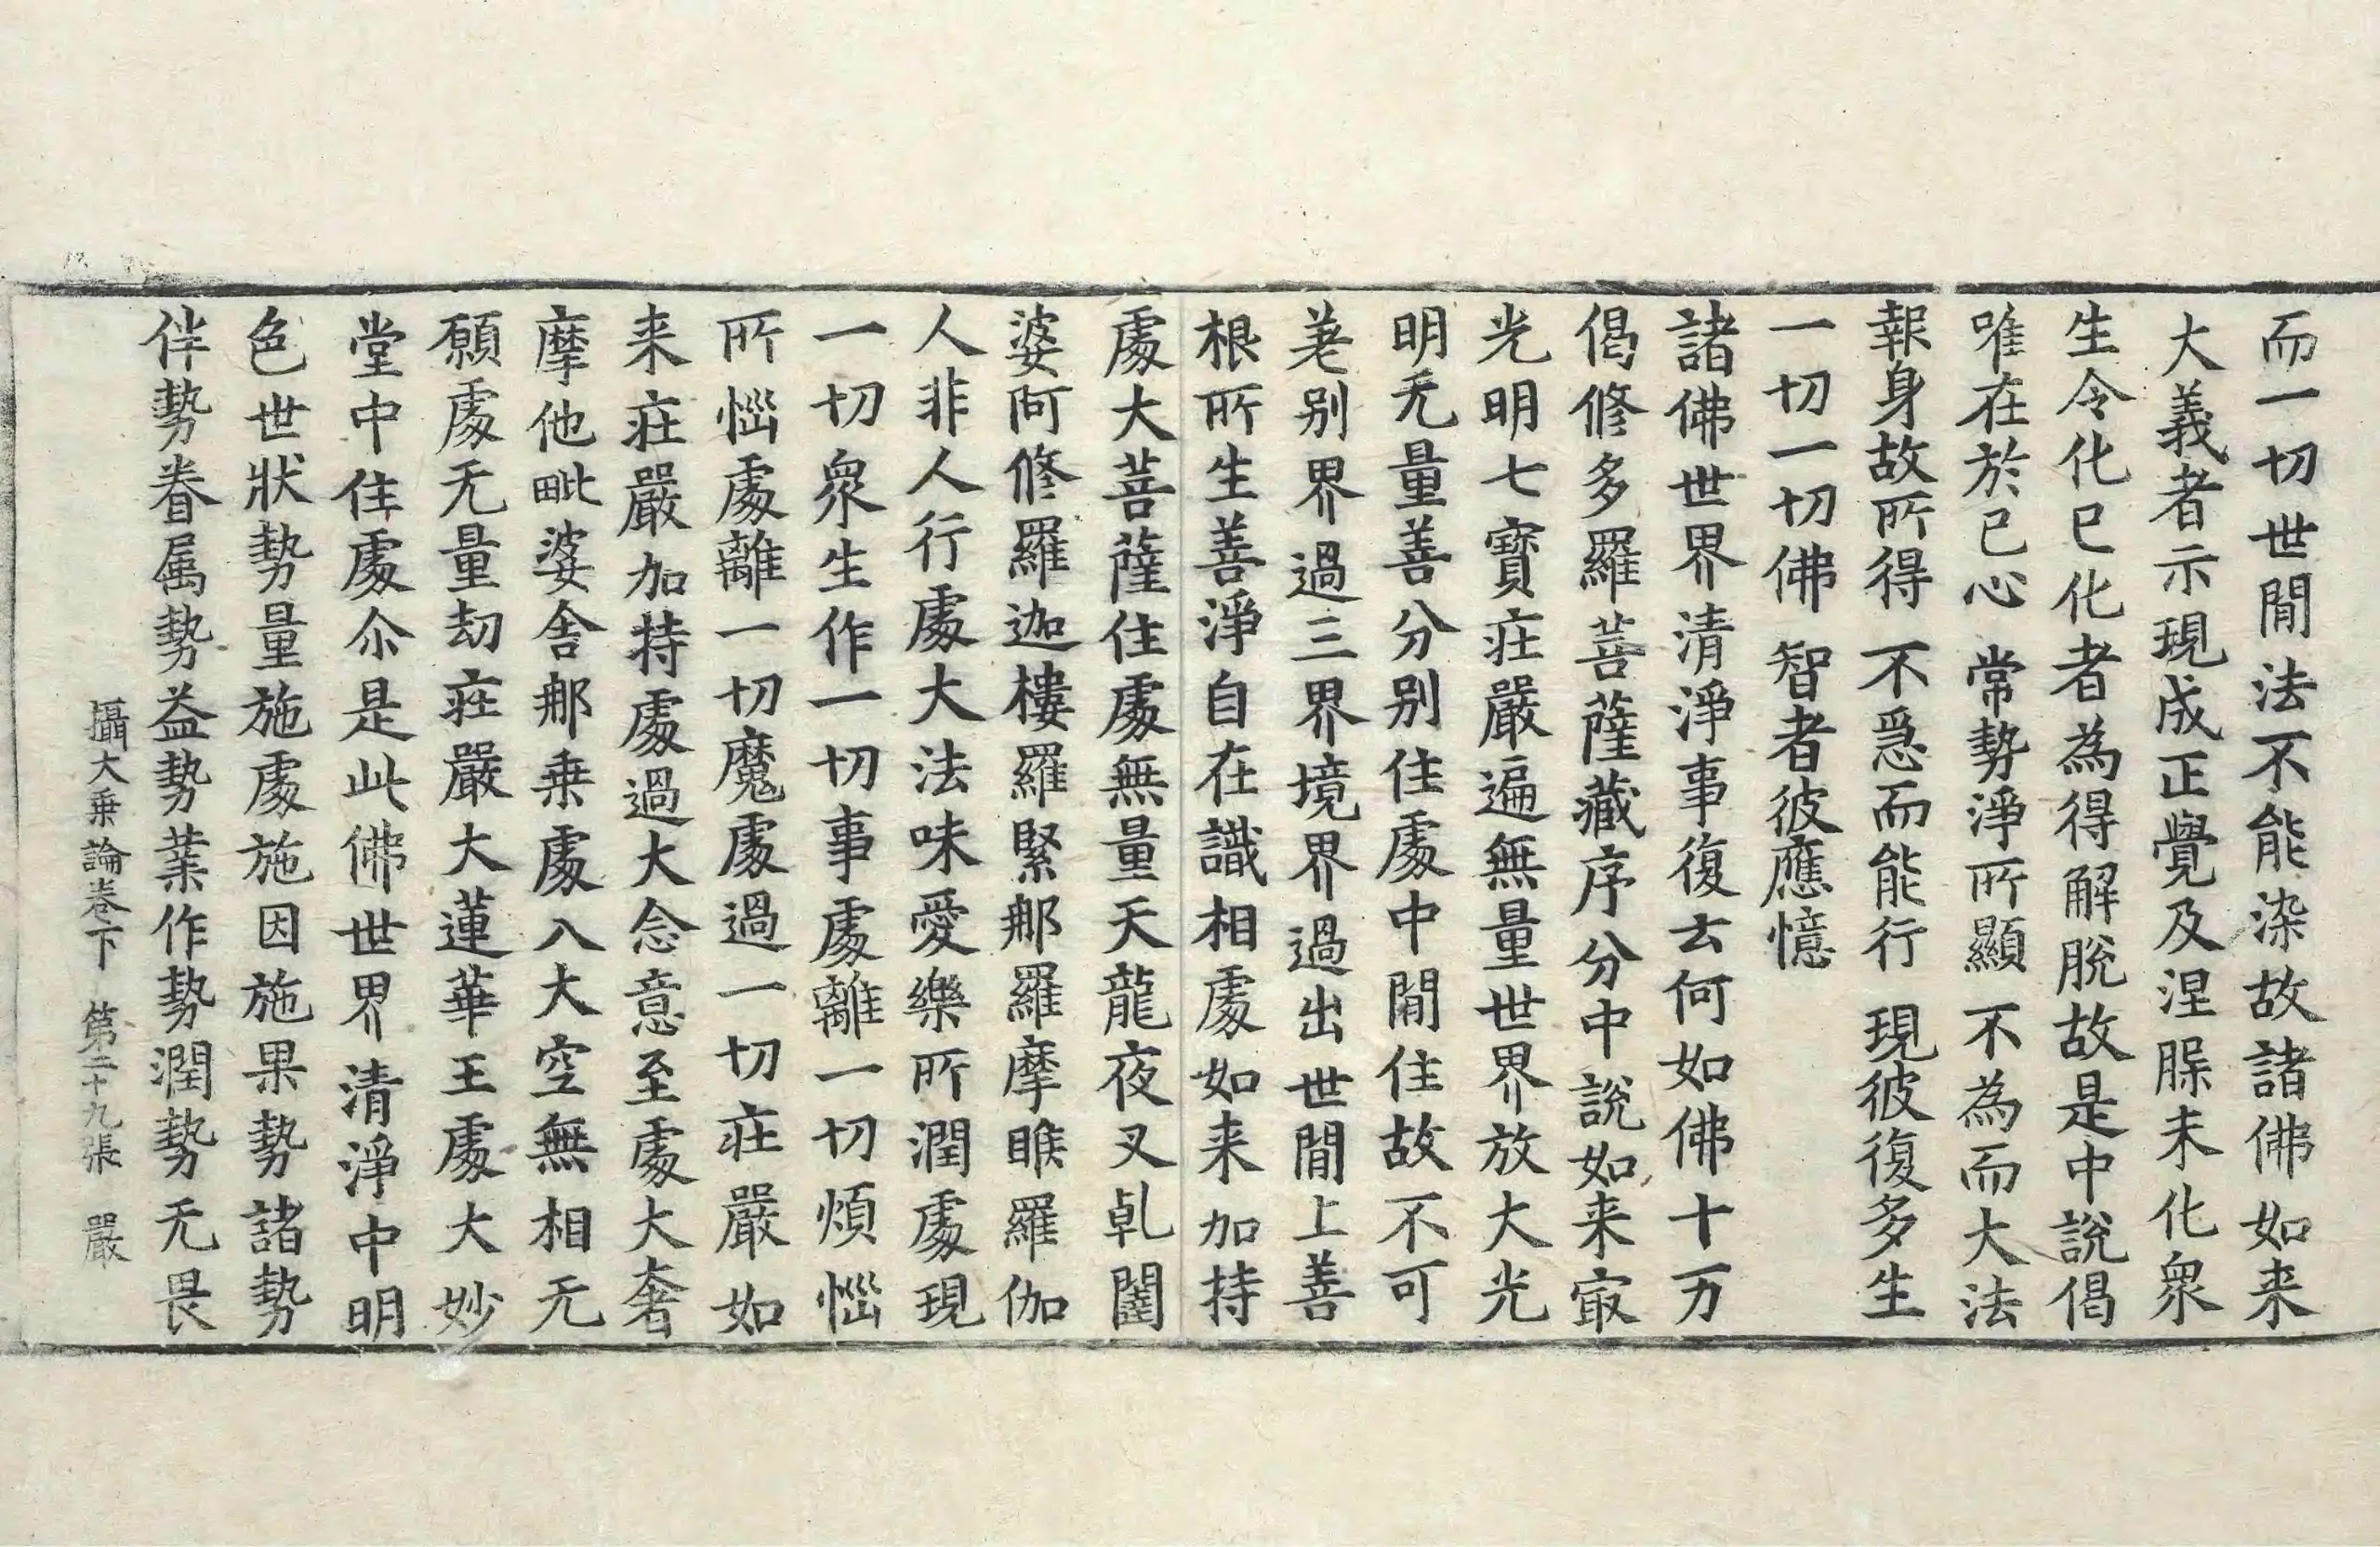 而一切世閒法不能染故諸佛如来
大義者示現成正覺及涅槃未化衆
生令化已化者為得解脫故是中說偈
唯在於已心 常勢淨所顯 不為而大法
報身故所得 不爲而能行 現彼復多生
一切一切佛 智者彼應憶
諸佛世界清淨事復云何如佛十万
偈修多羅菩薩藏序分中說如来㝡
光明七寶莊嚴遍無量世界放大光
明无量善分别住處中閒住故不可
差别界過三界境界過出世閒上善
根所生善淨自在識相處如来加持
處大菩薩住處無量天龍夜叉乹闥
婆阿修羅迦樓羅緊那羅摩睺羅伽
人非人行處大法味愛樂所潤處現
一切衆生作一切事處離一切煩惱
所惱處離一切魔處過一切莊嚴如
来莊嚴加持處過大念意至處大奢
摩他毗婆舍那乗處八大空無相无
願處无量劫莊嚴大蓮華王處大妙
堂中住處尒是此佛世界清淨中明
色世狀勢量施處施因施果勢諸勢
伴勢眷属勢益勢業作勢潤勢无畏
攝大乗論卷下 第二十九張 嚴